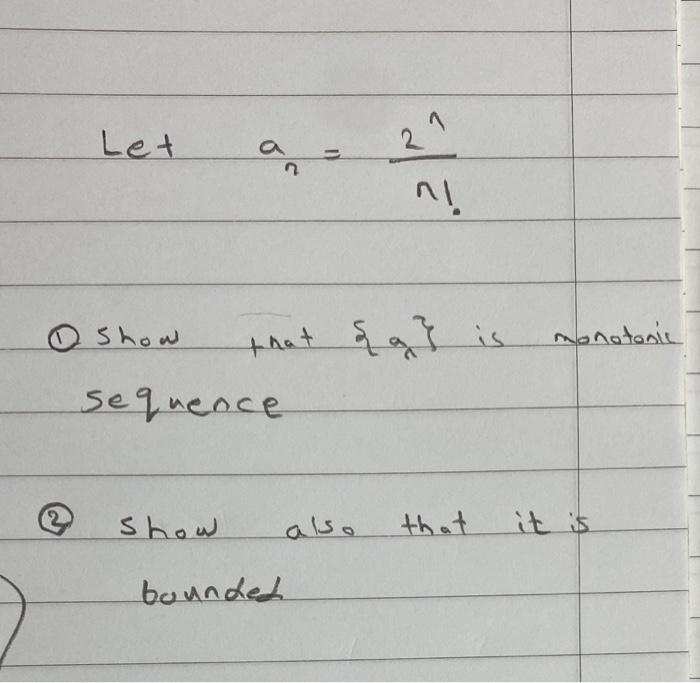 Let a_n = 2^n / n!
① Show that {a_n} is monotonic
sequence
② Show also that it is
bounded